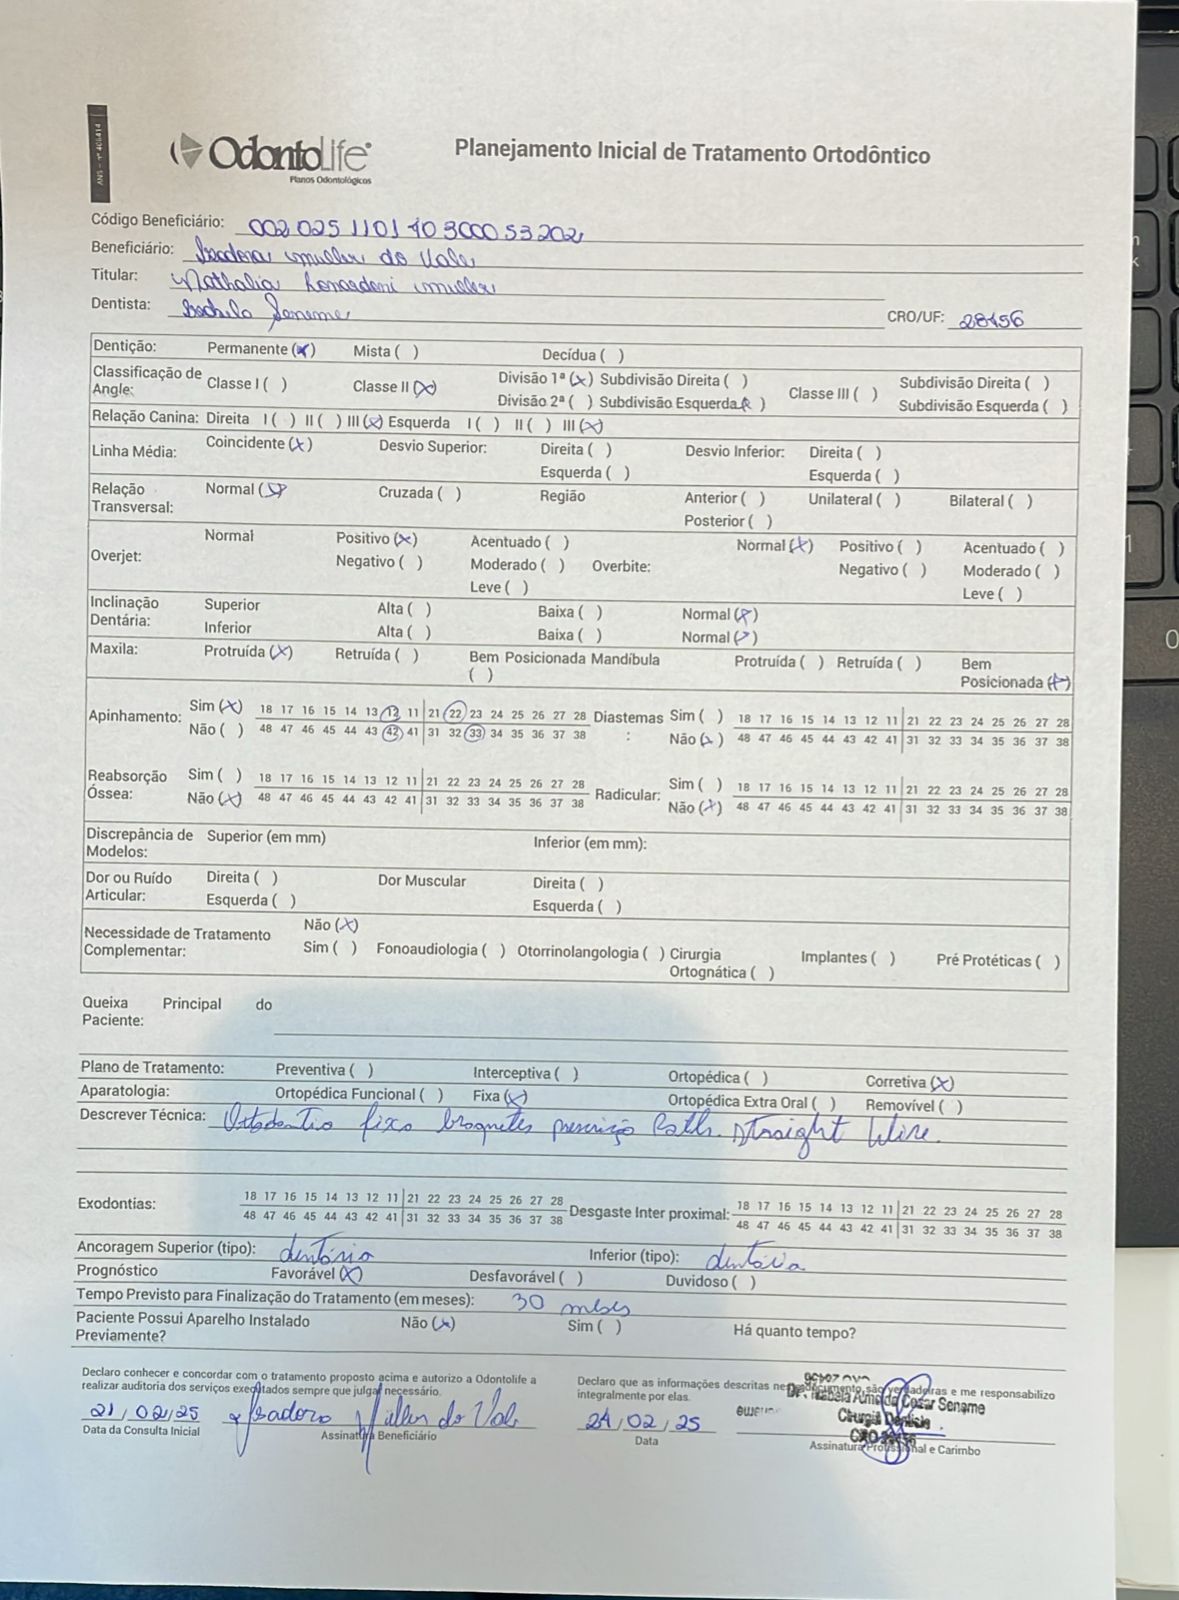 ANS - nº 406414
OdontoLife®
Planos Odontológicos
Planejamento Inicial de Tratamento Ortodôntico
Código Beneficiário: 002025110110300053202
Beneficiário: Isadora Muller do Vale
Titular: Nathalia Muller
Dentista: CRO/UF: 28456
Dentição: Permanente (x) Mista ( ) Decídua ( )
Classificação de Angle: Classe I ( ) Classe II (x) Divisão 1ª (x) Subdivisão Direita ( ) Divisão 2ª ( ) Subdivisão Esquerda (x) Classe III ( ) Subdivisão Direita ( ) Subdivisão Esquerda ( )
Relação Canina: Direita I ( ) II ( ) III (x) Esquerda I ( ) II ( ) III (x)
Linha Média: Coincidente (x) Desvio Superior: Direita ( ) Esquerda ( ) Desvio Inferior: Direita ( ) Esquerda ( )
Relação Transversal: Normal (x) Cruzada ( ) Região Anterior ( ) Posterior ( ) Unilateral ( ) Bilateral ( )
Overjet: Normal Positivo (x) Negativo ( ) Acentuado ( ) Moderado ( ) Leve ( ) Overbite: Normal (x) Positivo ( ) Negativo ( ) Acentuado ( ) Moderado ( ) Leve ( )
Inclinação Dentária: Superior Alta ( ) Baixa ( ) Normal (x)
Inferior Alta ( ) Baixa ( ) Normal (x)
Maxila: Protruída (x) Retruída ( ) Bem Posicionada ( ) Mandíbula Protruída ( ) Retruída ( ) Bem Posicionada (x)
Apinhamento: Sim (x) 18 17 16 15 14 13 12 11 | 21 22 23 24 25 26 27 28 Diastemas: Sim ( ) 18 17 16 15 14 13 12 11 | 21 22 23 24 25 26 27 28
Não ( ) 48 47 46 45 44 43 42 41 | 31 32 33 34 35 36 37 38 Não (x) 48 47 46 45 44 43 42 41 | 31 32 33 34 35 36 37 38
Reabsorção Óssea: Sim ( ) 18 17 16 15 14 13 12 11 | 21 22 23 24 25 26 27 28 Radicular: Sim ( ) 18 17 16 15 14 13 12 11 | 21 22 23 24 25 26 27 28
Não (x) 48 47 46 45 44 43 42 41 | 31 32 33 34 35 36 37 38 Não (x) 48 47 46 45 44 43 42 41 | 31 32 33 34 35 36 37 38
Discrepância de Modelos: Superior (em mm) Inferior (em mm):
Dor ou Ruído Articular: Direita ( ) Esquerda ( ) Dor Muscular Direita ( ) Esquerda ( )
Necessidade de Tratamento Complementar: Não (x)
Sim ( ) Fonoaudiologia ( ) Otorrinolangologia ( ) Cirurgia Ortognática ( ) Implantes ( ) Pré Protéticas ( )
Queixa Principal do Paciente:
Plano de Tratamento: Preventiva ( ) Interceptiva ( ) Ortopédica ( ) Corretiva (x)
Aparatologia: Ortopédica Funcional ( ) Fixa (x) Ortopédica Extra Oral ( ) Removível ( )
Descrever Técnica: Ortodontia fixa braquetes prescrição Roth. Straight Wire.
Exodontias: 18 17 16 15 14 13 12 11 | 21 22 23 24 25 26 27 28 Desgaste Inter proximal: 18 17 16 15 14 13 12 11 | 21 22 23 24 25 26 27 28
48 47 46 45 44 43 42 41 | 31 32 33 34 35 36 37 38 48 47 46 45 44 43 42 41 | 31 32 33 34 35 36 37 38
Ancoragem Superior (tipo): dentária Inferior (tipo): dentária
Prognóstico Favorável (x) Desfavorável ( ) Duvidoso ( )
Tempo Previsto para Finalização do Tratamento (em meses): 30 meses
Paciente Possui Aparelho Instalado Previamente? Não (x) Sim ( ) Há quanto tempo?
Declaro conhecer e concordar com o tratamento proposto acima e autorizo a Odontolife a realizar auditoria dos serviços executados sempre que julgar necessário.
Declaro que as informações descritas neste documento são verdadeiras e me responsabilizo integralmente por elas.
21/02/25 Isadora Müller do Vale
Data da Consulta Inicial Assinatura Beneficiário
21/02/25
Data
Almeida Cesar Sename
Cirurgiã Dentista
CRO 28456
Assinatura Profissional e Carimbo